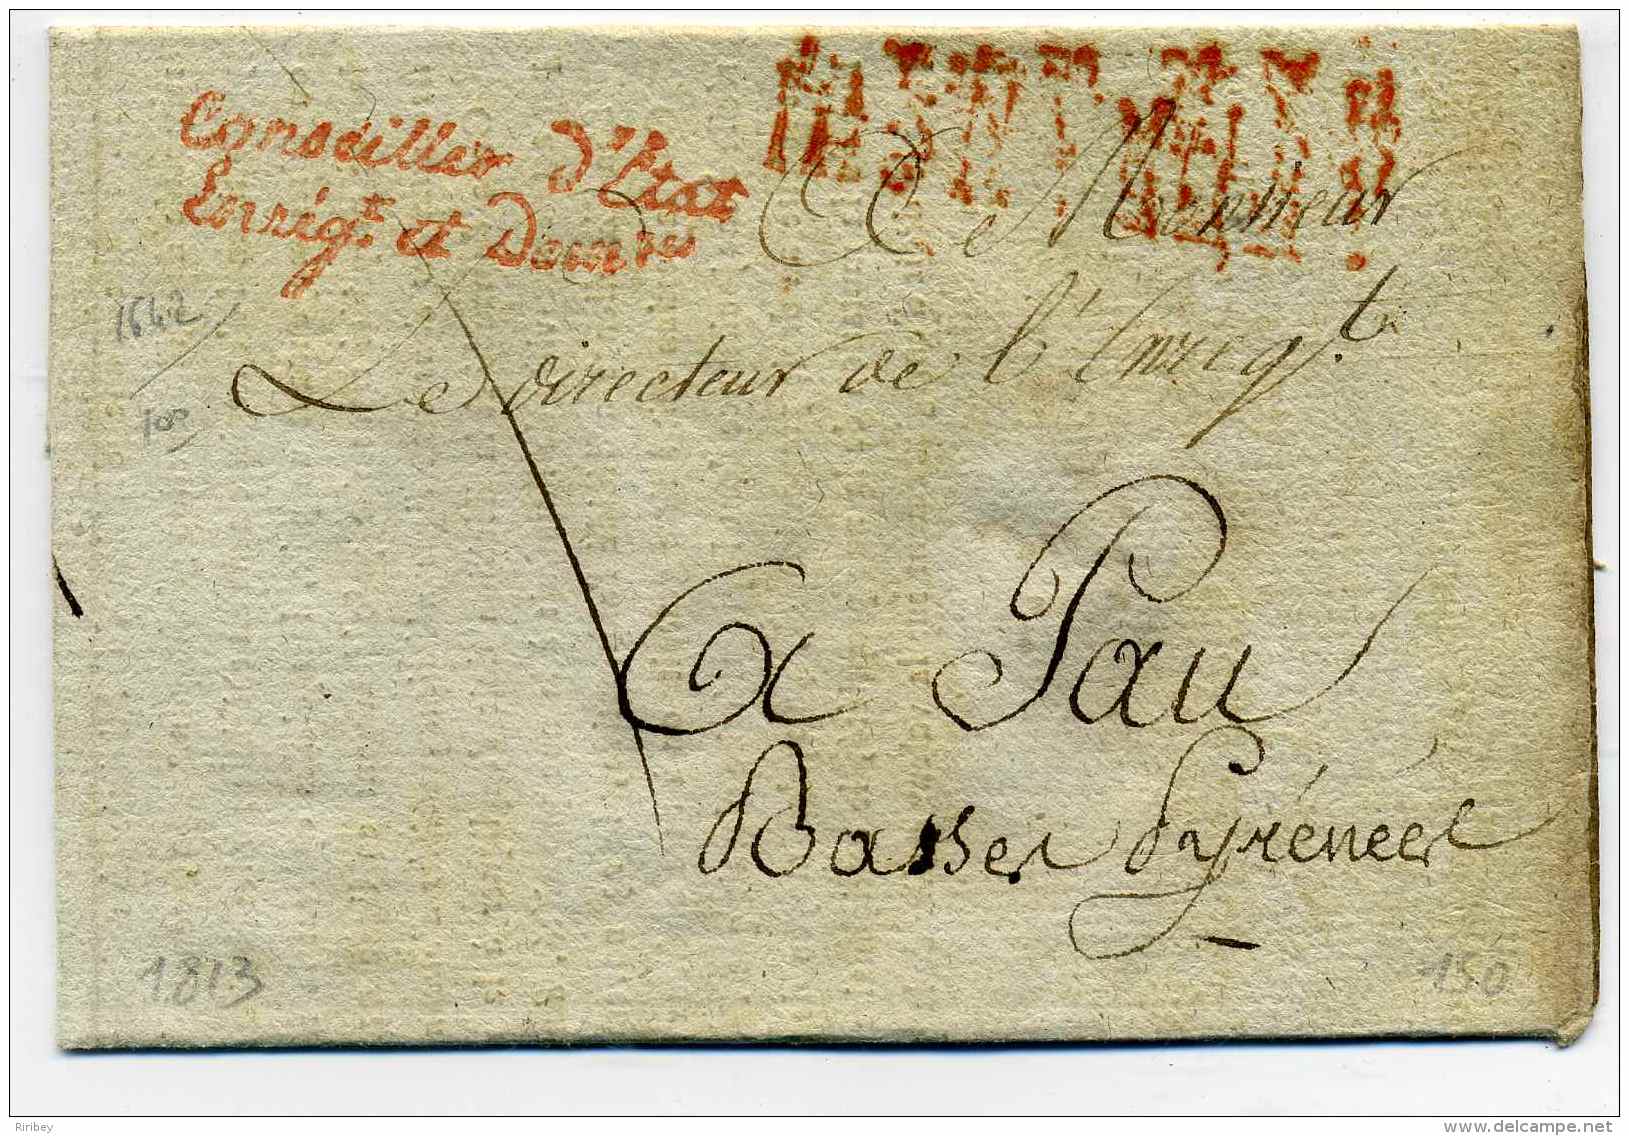 Conseiller d'Etat
Enrég.t et Dom.nes
A Monsieur
Le Directeur de l'Enreg.t
1642
a Pau
Basses Pyrénées
1813
150
Riribey
www.delcampe.net